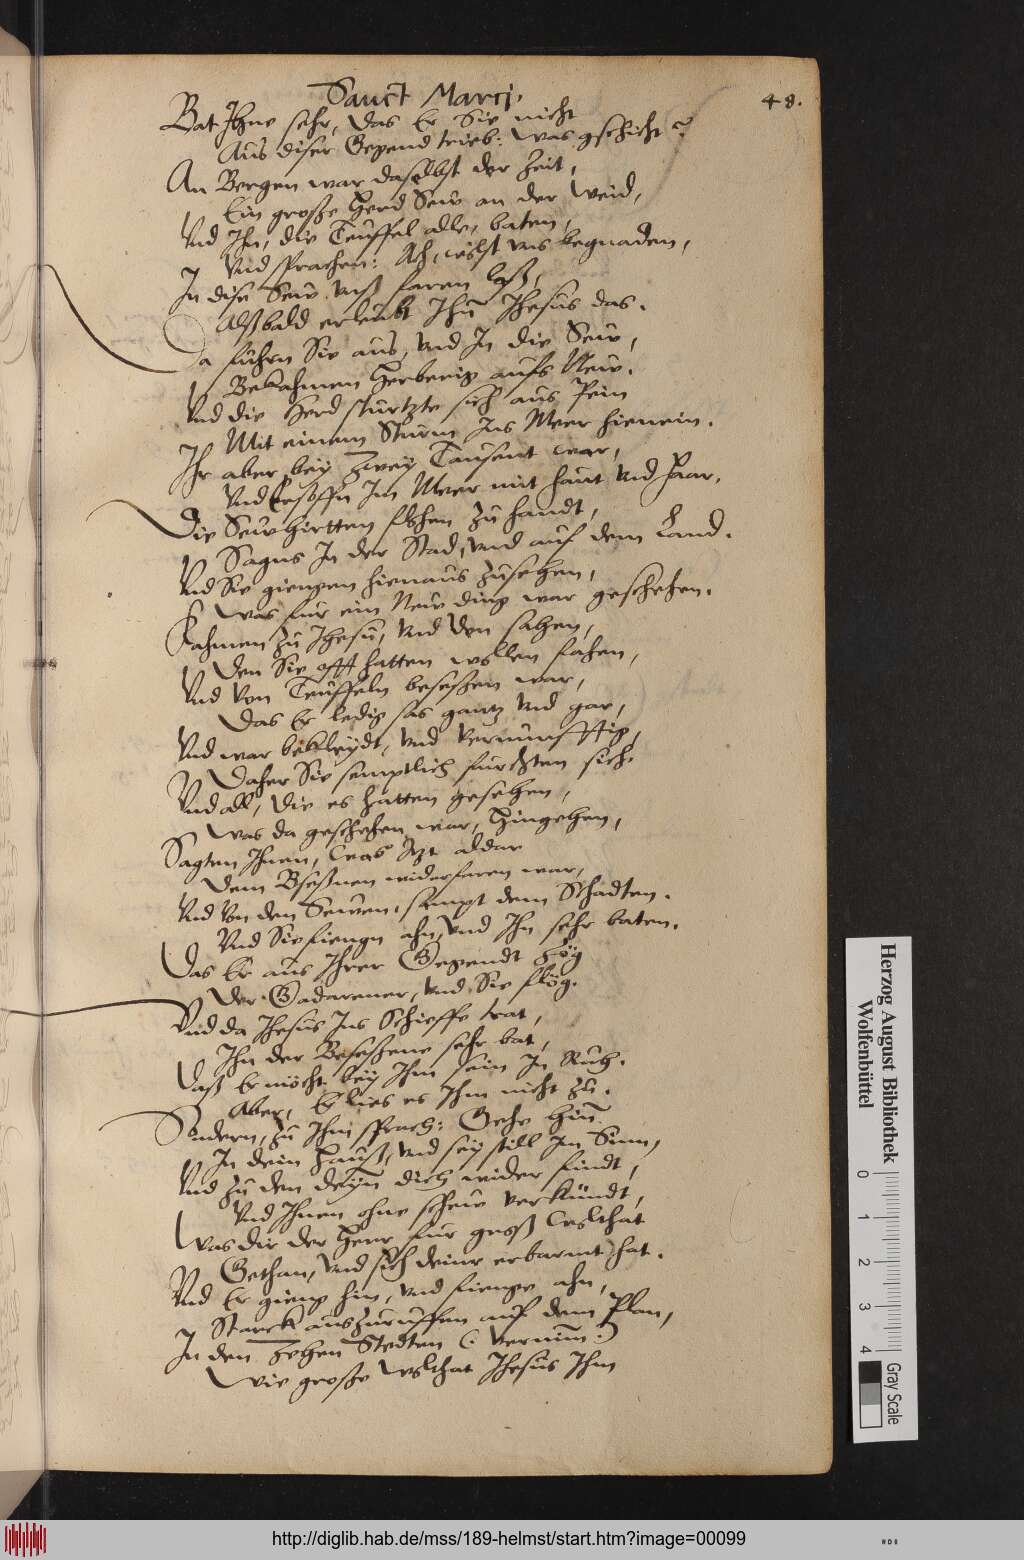 Sanct Marcj.
48.
Bat Ihne sehr, das Er Sie nicht
Aus diser Gegend trieb: Was gschicht?
An Bergen war daselbst der Zeit,
Ein grosse Herd Sew an der Weid,
Vnd Ihn, die Teuffel alle, baten,
Vnd sprachen: Ach, wölst vns begnaden,
In dise Sew vnß faren laß,
Alßbald erleubt Ihn Jhesus das.
Da fuhrn Sie aus, vnd In die Sew,
Bekahmen Herberig aufs New.
Vnd die Herd sturtzte sich aus Pein
Mit einem Sturm Ins Meer hienein.
Ihr aber bey Zwey Tausent war,
Vnd Ersoffn Im Meer mit haut vnd Haar.
Die Sewhirtten flohen Zu handt,
Sagns In der Stad, vnd auf dem Land.
Vnd Sie giengen hienaus Zusehen,
Was fur ein New ding war geschehen.
Kahmen Zu Jhesu, vnd den sahen,
Den Sie offt hatten wollen fahen,
Vnd Von Teuffeln besessen war,
Das Er ledig sas gantz vnd gar,
Vnd war bekleydt, vnd vernunfftig,
Daher Sie semptlich furchten sich.
Vnd all, die es hatten gesehen,
Was da geschehen war, Hingehen,
Sagten Ihnen, Was Itzt aldar
Dem Bseßnen widerfaren war,
Vnd Von den Sewen, sampt dem Schadten.
Vnd Sie fiengn ahn, vnd Ihn sehr baten.
Das Er aus Ihrer Gegendt Zög
Der Gadarener, vnd Sie flög.
Vnd da Jhesus Ins Schieffe trat,
Ihn der Besessene sehr bat,
Daß Er möcht bey Ihm sein In Ruh.
Aber, Er lies es Ihm nicht Zu.
Sondern, Zu Ihm sprach: Gehe hin
In dein Hauß, vnd sey still Im Sinn,
Vnd Zu den deyn dich wider findt,
Vnd Ihnen ohne schew verkündt,
Was dir der Herr fur groß Wolthat
Gethan, vnd sich deiner erbarmt hat.
Vnd Er gieng hin, vnd fienge ahn,
Starck auszuruffen auf dem Plan,
In den Zehen Stedten (: vernim :)
Wie grosse Wolthat Jhesus Ihm
Herzog August Bibliothek
Wolfenbüttel
0 1 2 3 4
Gray Scale
http://diglib.hab.de/mss/189-helmst/start.htm?image=00099